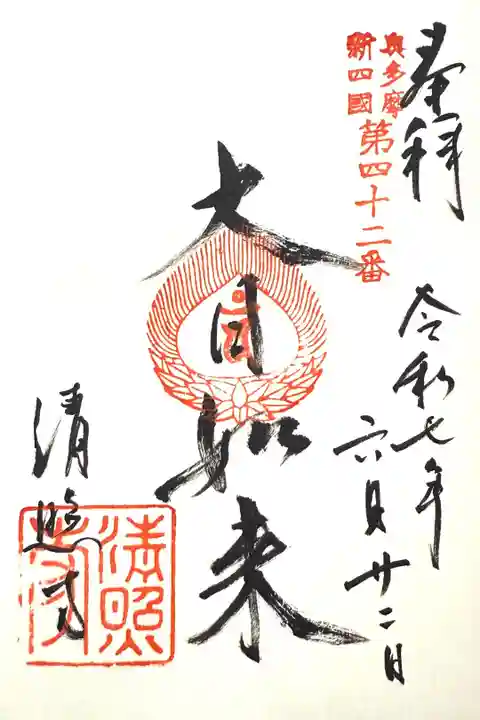 奉拝
奥多摩
新四國
第四十二番
令和七年
六月廿二日
大日如来
清照寺
清照